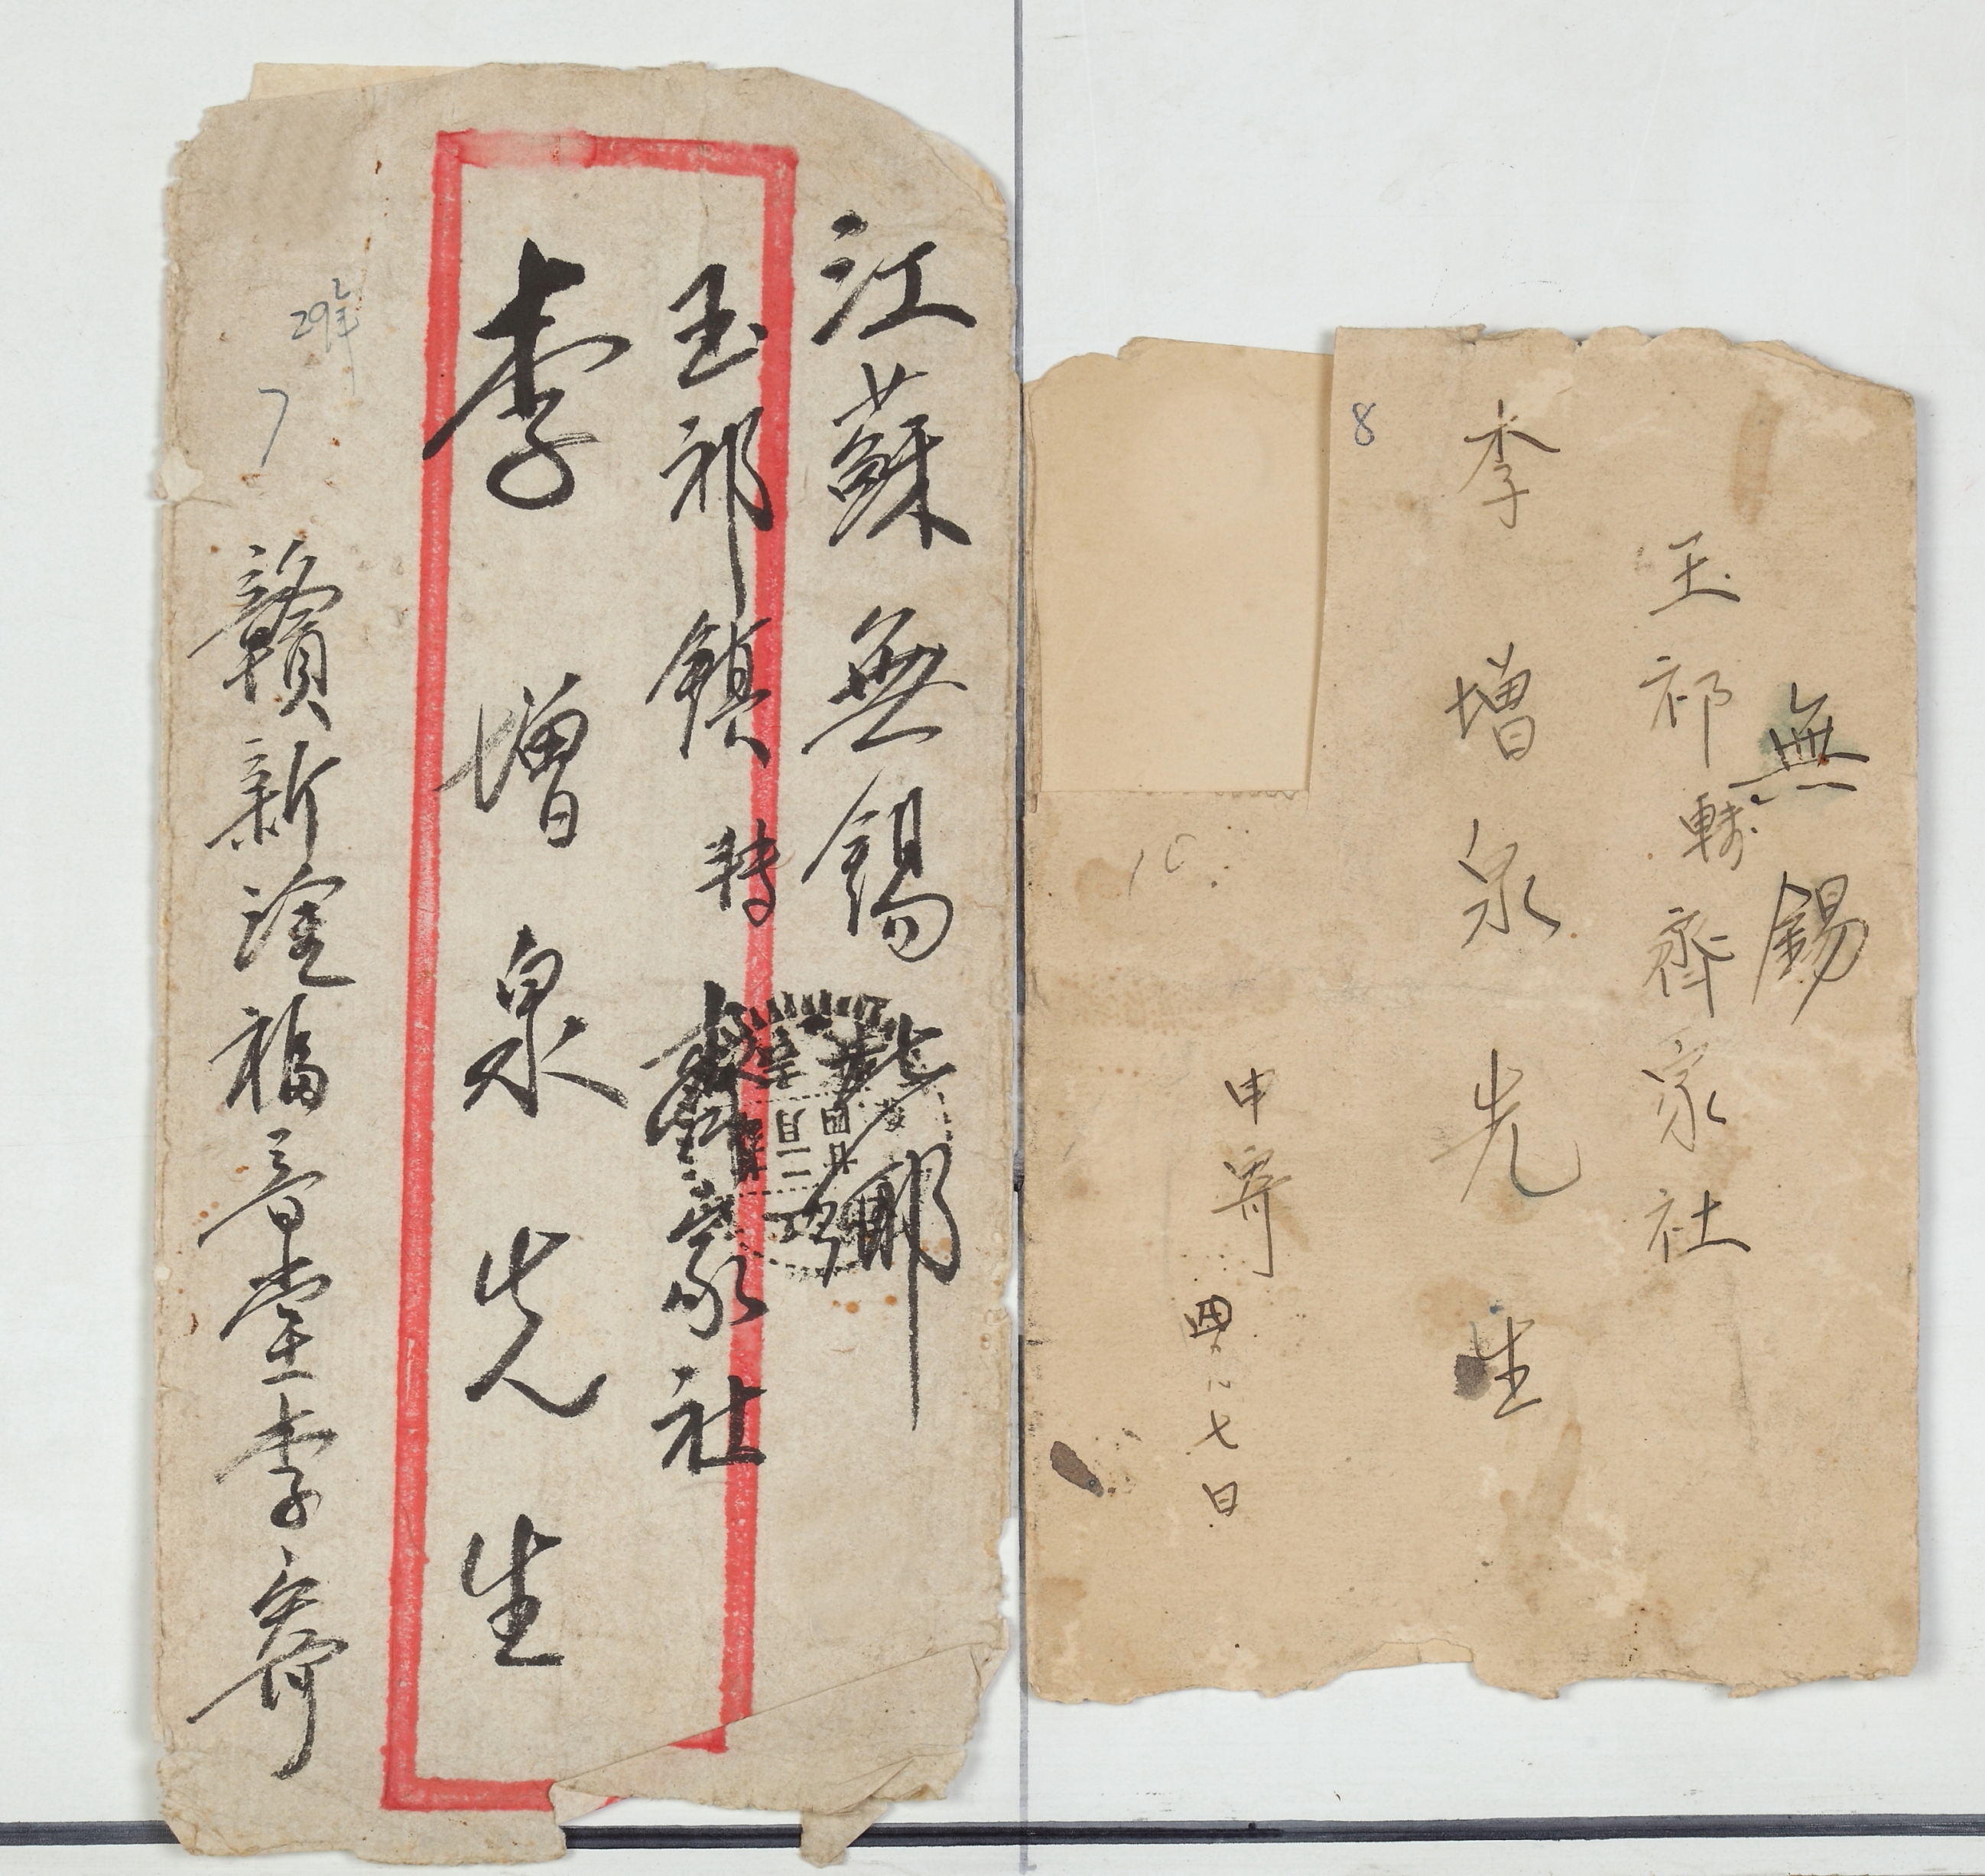 江蘇無錫北鄉
玉祁鎮轉齊家社
李增泉先生
贛新淦福音堂李寄
29年
7
二月
無錫
玉祁轉齊家社
李增泉先生
8
申寄
四、二、七日